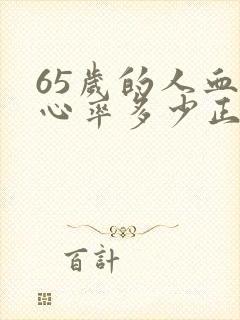 65歲的人血
心率多少正
百計